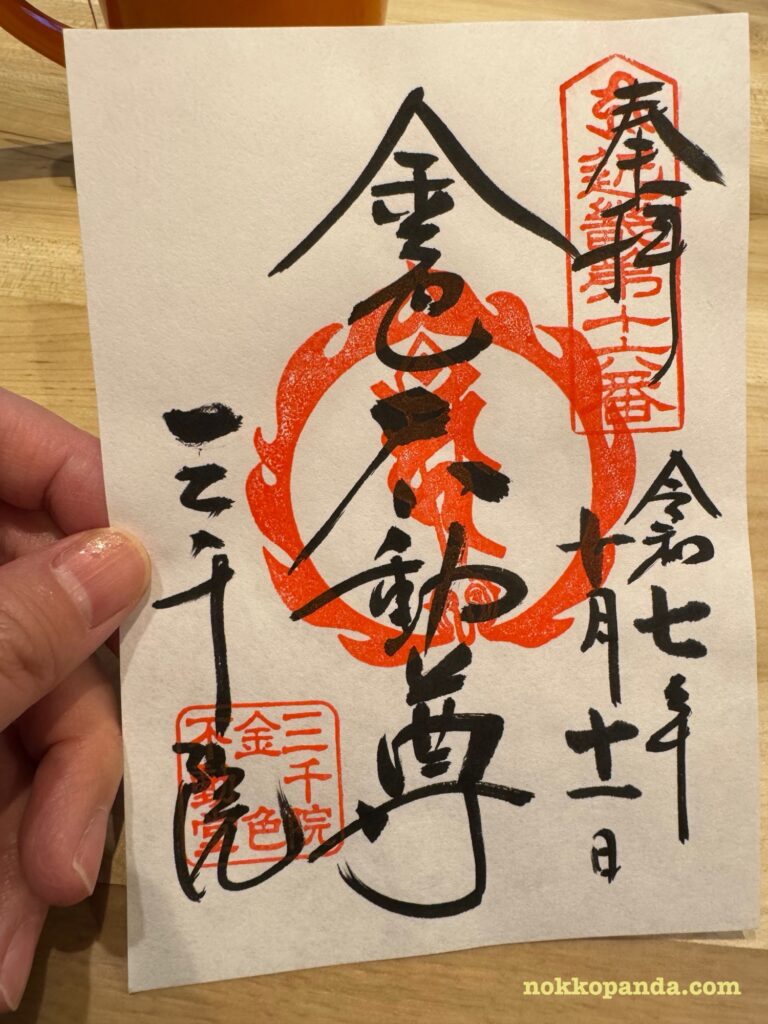 奉拝
近畿第十六番
令和七年
十月十一日
金色不動尊
三千院
三千院
金色
不動堂
nokkopanda.com